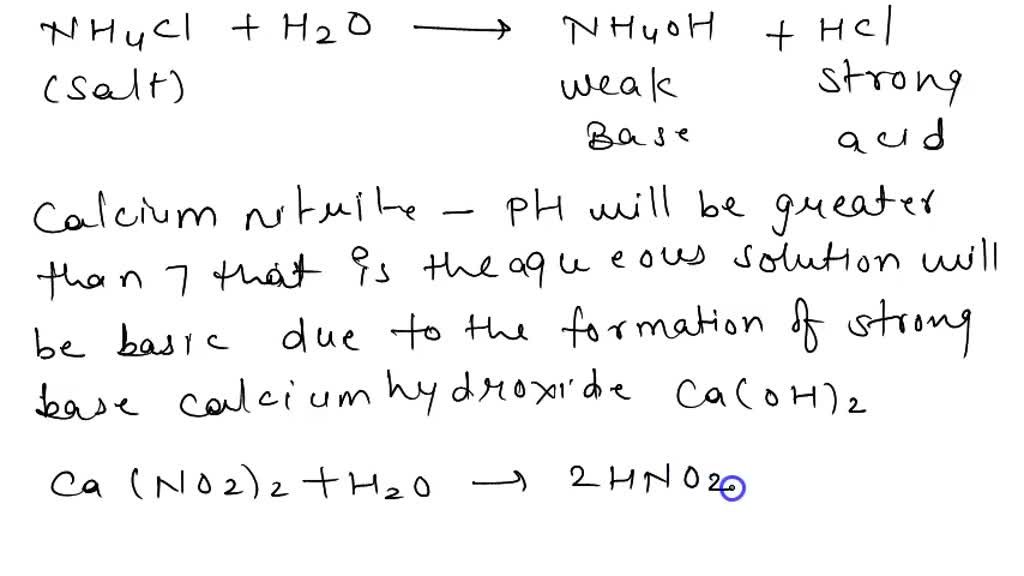 NH4Cl + H2O ⟶ NH4OH + HCl
(salt) weak strong
Base acid
Calcium nitrite - pH will be greater
than 7 that is the aqueous solution will
be basic due to the formation of strong
base calcium hydroxide Ca(OH)2
Ca(NO2)2 + H2O → 2HNO2